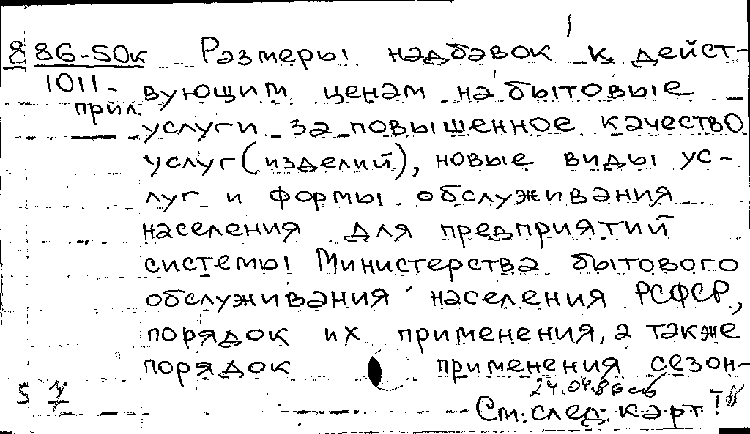 886-50к Размеры надбавок к дейст-
1011- вующим ценам на бытовые
прил. услуги за повышенное качество
услуг (изделий), новые виды ус-
луг и формы обслуживания
населения для предприятий
системы Министерства бытового
обслуживания населения РСФСР,
порядок их применения, а также
порядок применения сезон-
См. след. карт